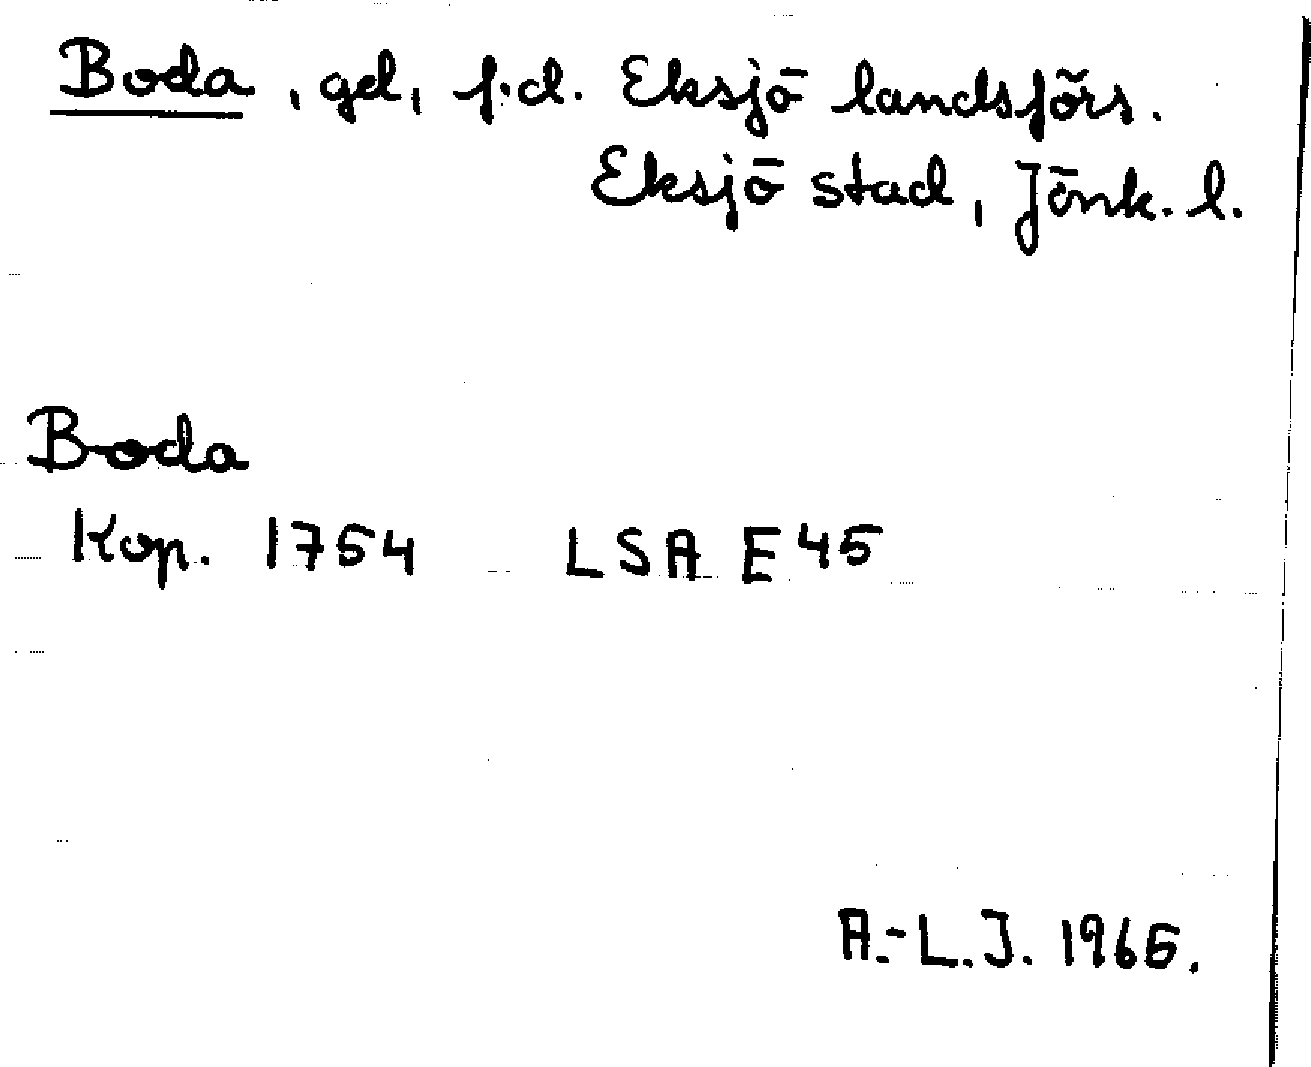 Boda, gd, f.d. Eksjö landsförs.
Eksjö stad, Jönk. l.
Boda
Kop. 1754 LSA E45
A.-L.J. 1965.